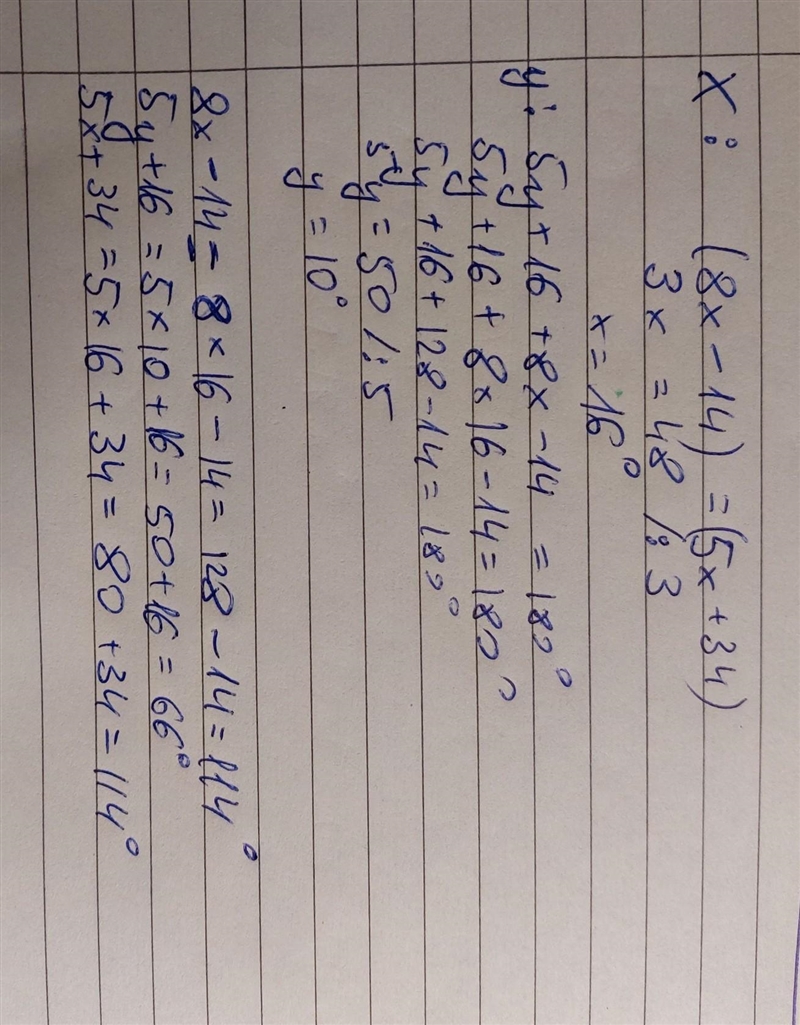 x: (8x - 14) = (5x + 34)
3x = 48 /:3
x = 16°
y: 5y + 16 + 8x - 14 = 180°
5y + 16 + 8 × 16 - 14 = 180°
5y + 16 + 128 - 14 = 180°
5y = 50 /:5
y = 10°
8x - 14 = 8 × 16 - 14 = 128 - 14 = 114°
5y + 16 = 5 × 10 + 16 = 50 + 16 = 66°
5x + 34 = 5 × 16 + 34 = 80 + 34 = 114°